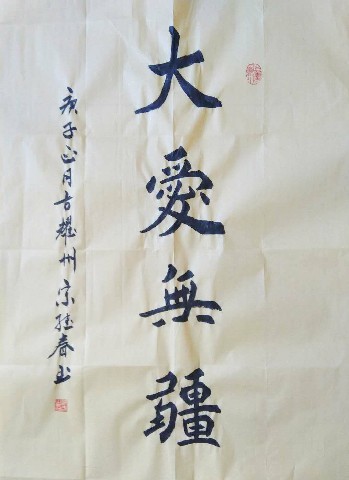 大愛無疆
庚子正月古耀州宗维春书